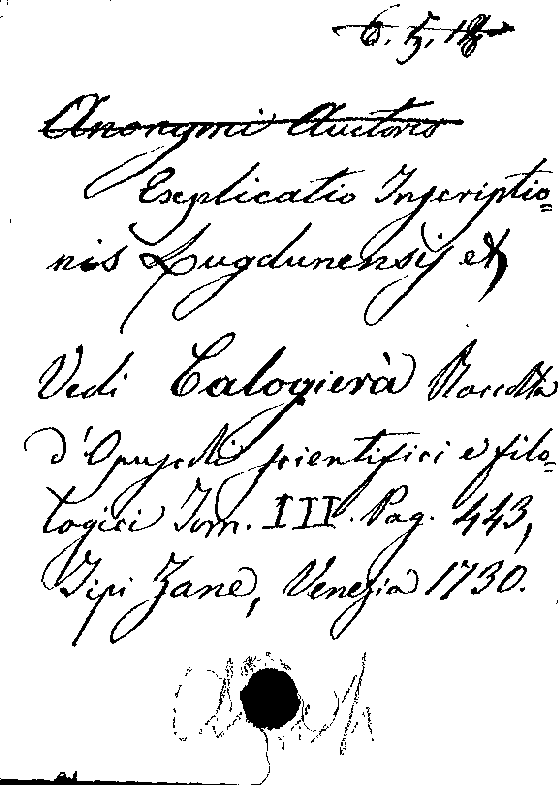 6. 5. 18
Anonymi Auctoris
Explicatio Inscriptio=
nis Lugdunensis et
Vedi Calogierà Raccolta
d'Opuscoli scientifici e filo=
logici Tom. III. Pag. 443,
Tipi Zane, Venezia 1730.